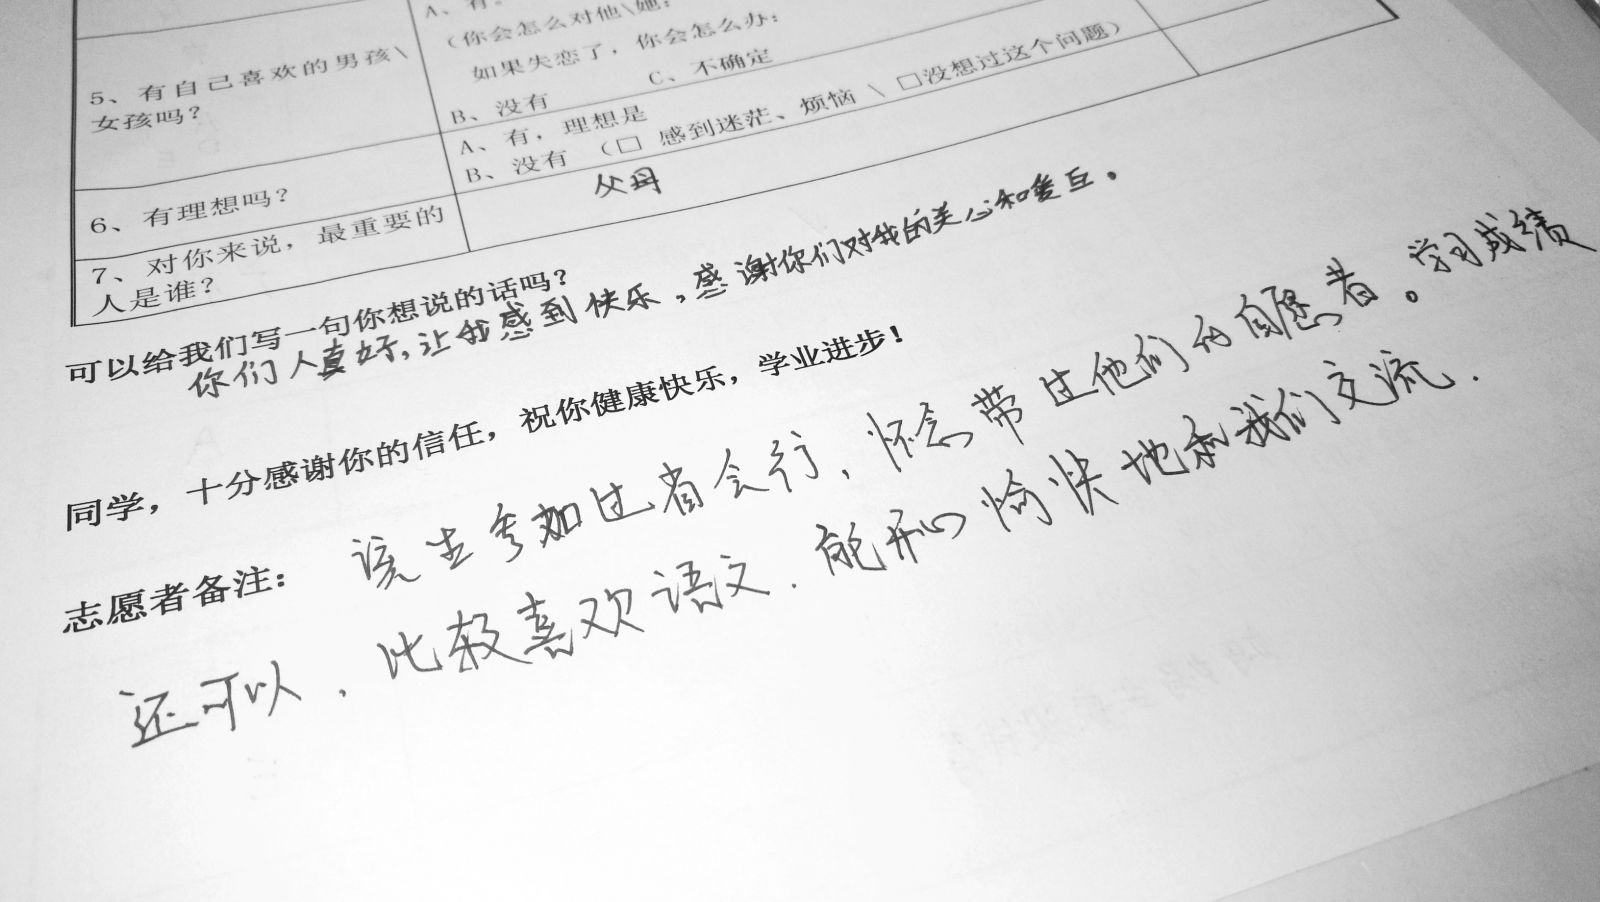 A、有。
（你会怎么对他\她：
如果失恋了，你会怎么办：
B、没有 C、不确定
5、有自己喜欢的男孩\
女孩吗？
A、有，理想是
B、没有 （□ 感到迷茫、烦恼 \ □没想过这个问题）
6、有理想吗？
父母
7、对你来说，最重要的
人是谁？
可以给我们写一句你想说的话吗？
你们人真好，让我感到快乐，感谢你们对我的关心和爱护。
同学，十分感谢你的信任，祝你健康快乐，学业进步！
志愿者备注： 该生参加过省会行，怀念带过他们的自愿者。学习成绩
还可以，比较喜欢语文．能开心愉快地和我们交流．